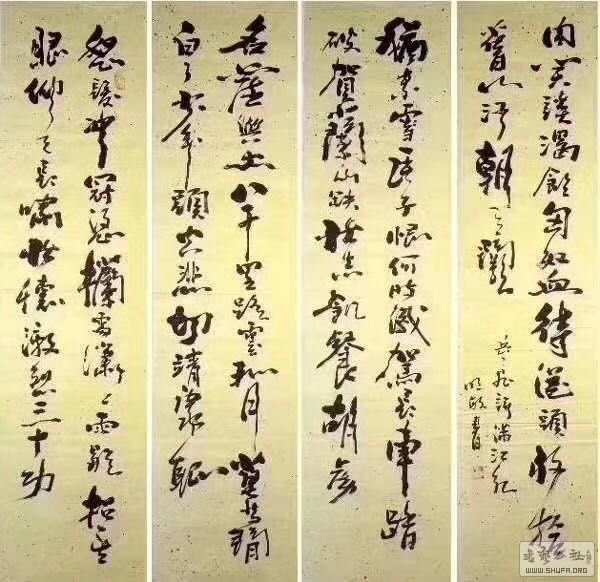 怒髮衝冠憑欄處瀟瀟雨歇抬望
眼仰天長嘯壯懷激烈三十功
名塵與土八千里路雲和月莫等閒
白了少年頭空悲切靖康恥
猶未雪臣子恨何時滅駕長車踏
破賀蘭山缺壯志飢餐胡虜
肉笑談渴飲匈奴血待從頭收拾
舊山河朝天闕
岳飛詞滿江紅
WWW.SHUFA.ORG